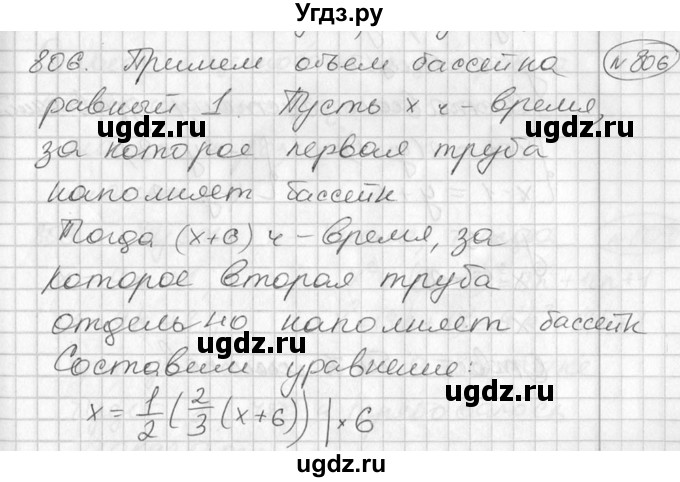 Угдз.ру
806. Примем объем бассейна №806
равный 1. Пусть x ч – время,
ugdz.ru ugdz.ru
за которое первая труба
наполняет бассейн
Тогда (x+6) ч – время, за
которое вторая труба
отдельно наполняет бассейн
ugdz.ru
Составим уравнение:
x = 1/2 (2/3 (x+6)) | × 6
ugdz.ru ugdz.ru
ugdz.ru